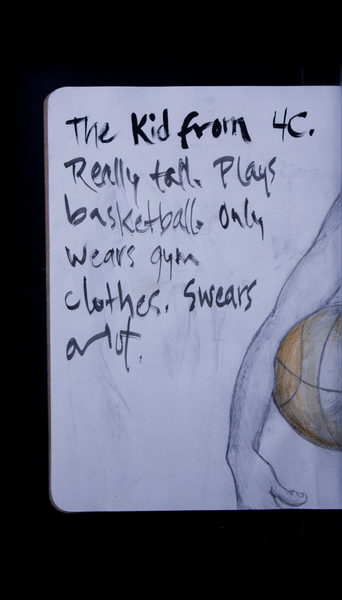 The Kid from 4C.
Really tall. Plays
basketball. Only
wears gym
clothes. Swears
a lot.